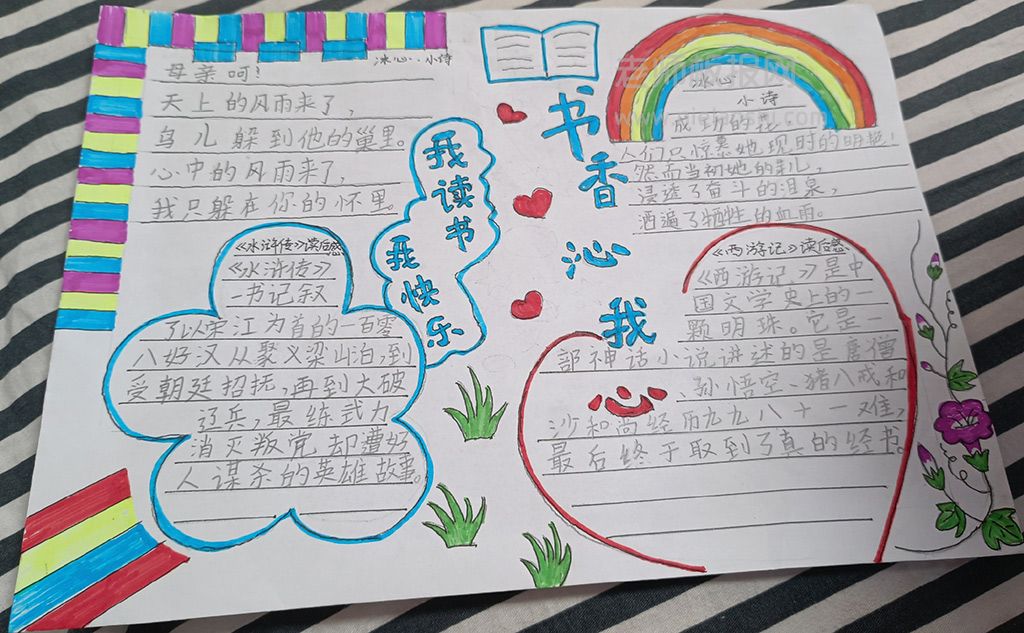 冰心·小诗
母亲呵!
天上的风雨来了,
鸟儿躲到他的巢里。
心中的风雨来了,
我只躲在你的怀里。
我读书
我快乐
书香沁我
心
冰心
小诗
成功的花
人们只惊慕她现时的明艳!
然而当初她的芽儿,
浸透了奋斗的泪泉,
洒遍了牺牲的血雨。
《水浒传》读后感
《水浒传》
一书记叙
了以宋江为首的一百零
八好汉从聚义梁山泊,到
受朝廷招抚,再到大破
辽兵,最练武力
消灭叛党却遭奸
人谋杀的英雄故事。
《西游记》读后感
《西游记》是中
国文学史上的一
颗明珠。它是一
部神话小说讲述的是唐僧
、孙悟空、猪八戒和
沙和尚经历九九八十一难,
最后终于取到了真的经书。